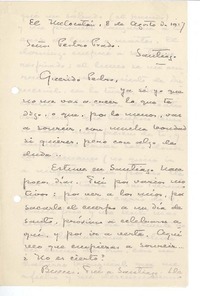 El Melocotón, 8 de Agosto de 1917
Señor Pedro Prado.
Santiago.
Querido Pedro,
ya sé yo que
no me vas a creer lo que te
digo, o que, por lo menos, vas
a sonreir, con mucha bondad
si quieres, pero con algo de
duda.
Estuve en Santiago hace
pocos días. Fuí por varios mo-
tivos: por ver a los míos, por
sacarle el cuerpo a un día de
santo, próximo a celebrarse a
quí, y por ir a verte. Aquí
veo que empiezas a sonreir.
¿No es cierto?
Bueno. Fuí a Santiago.